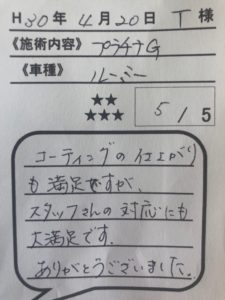 H30年4月20日 T 様
《施術内容》プラチナG
《車種》ルーミー
★★
★★★ 5/5
コーティングの仕上がり
も満足ですが、
スタッフさんの対応にも
大満足です。
ありがとうございました。